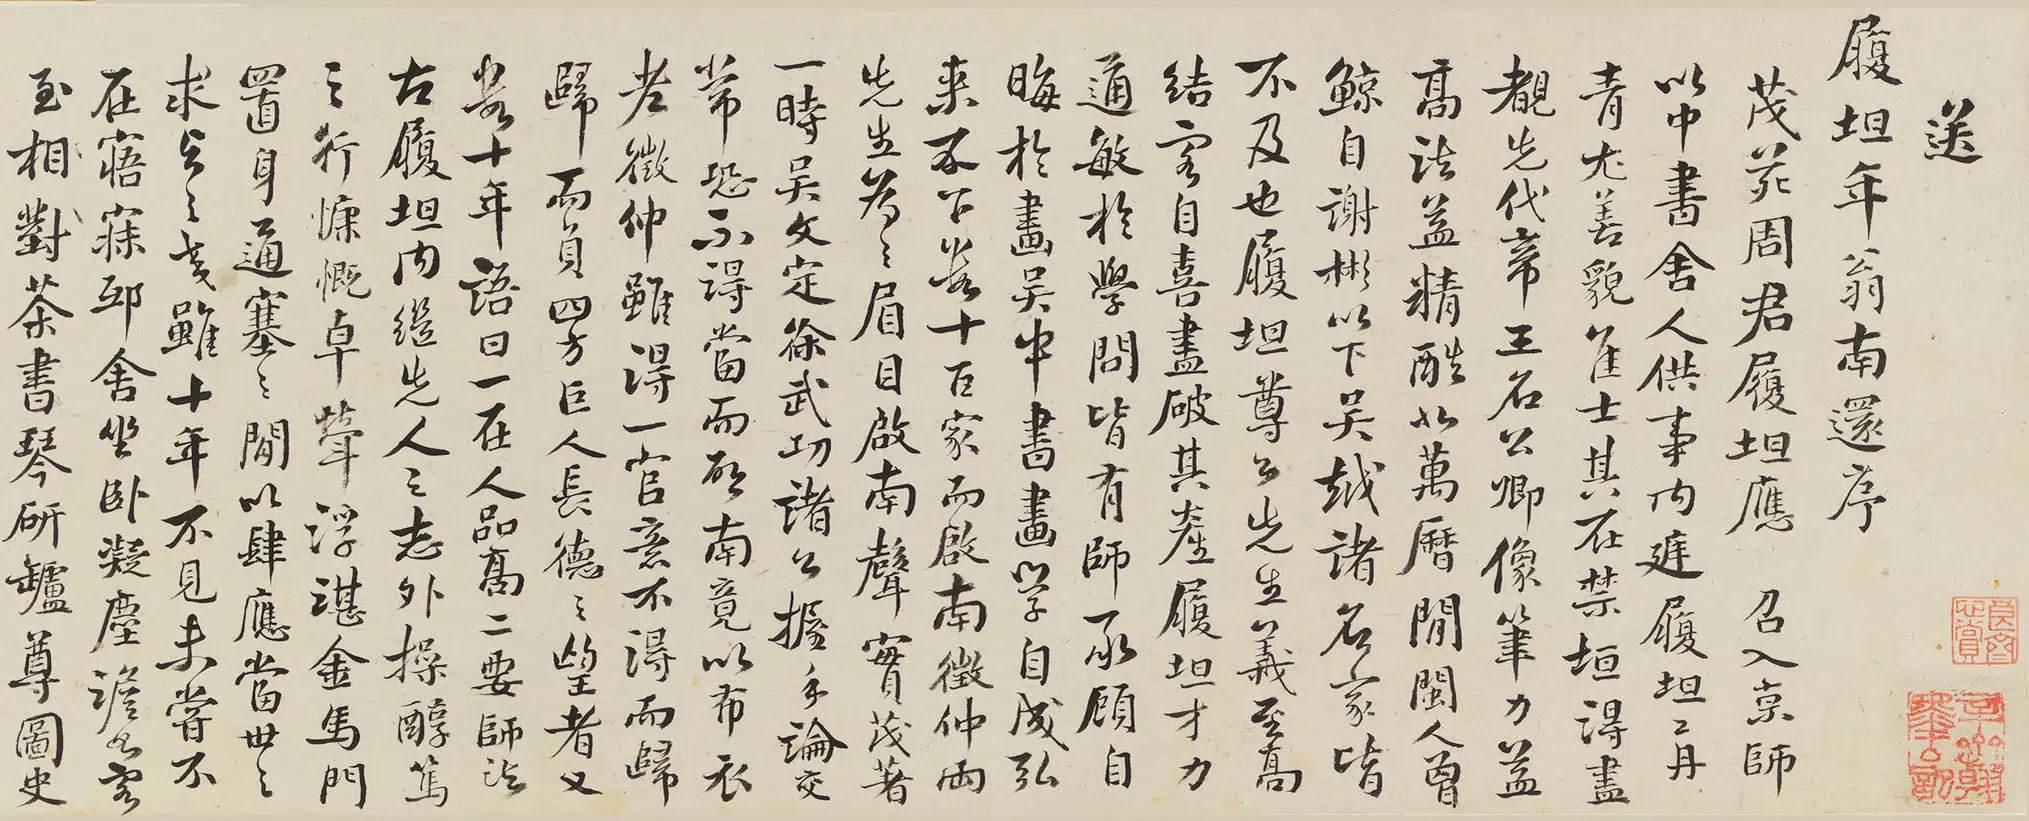 送
履坦年翁南還序
茂苑周君履坦應 召入京師
以中書舍人供事內廷履坦工丹
青尤善貌隹士其在禁垣得盡
覩先代帝王名公卿像筆力益
高法益精酷似萬曆間閩人曾
鯨自謝彬以下吳越諸名家皆
不及也履坦尊公先生義至高
結客自喜盡破其產履坦才力
通敏於學問皆有師承顧自
晦於畫吳中書畫學自成弘
來不下數十百家而啟南徵仲兩
先生為之眉目啟南聲實茂著
一時吳文定徐武功諸公握手論交
常恐不得當而啟南竟以布衣
老徵仲雖得一官意不得而歸
歸而負四方巨人長德之望者又
數十年語曰一在人品高二要師法
古履坦內繼先人之志外操醇篤
之行慷慨卓犖浮湛金馬門
置身通塞之間以肆應當世之
求與之交雖十年不見未嘗不
在寤寐邸舍坐臥凝塵澹如客
至相對茶書琴研罏尊圖史